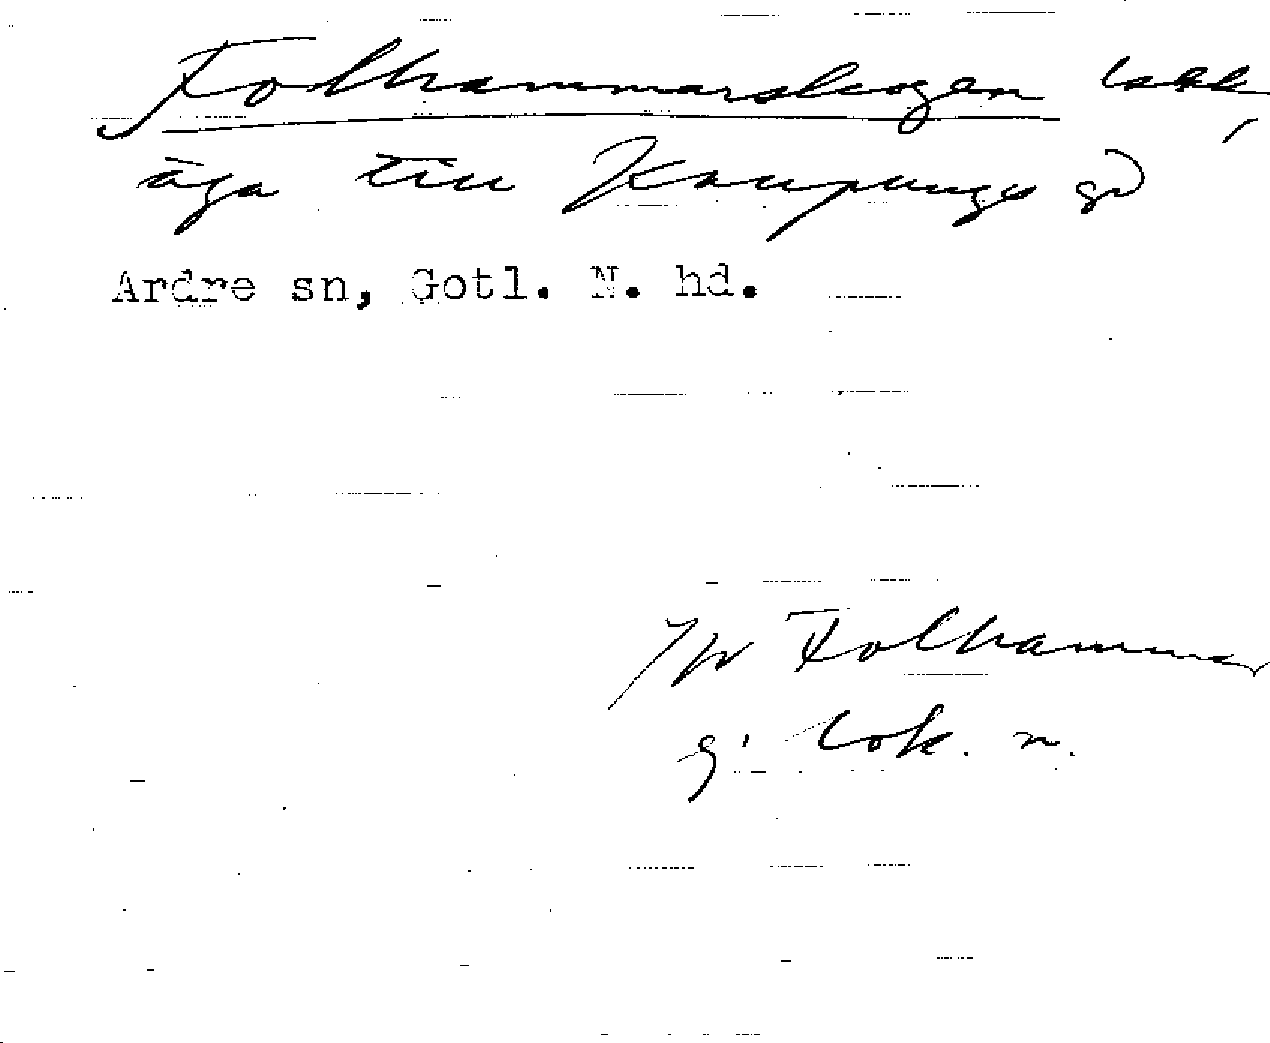 Folhammarskogen
äga till Kaupungs gd
Ardre sn, Gotl. N. hd.
Folhammar
g. lok. n.